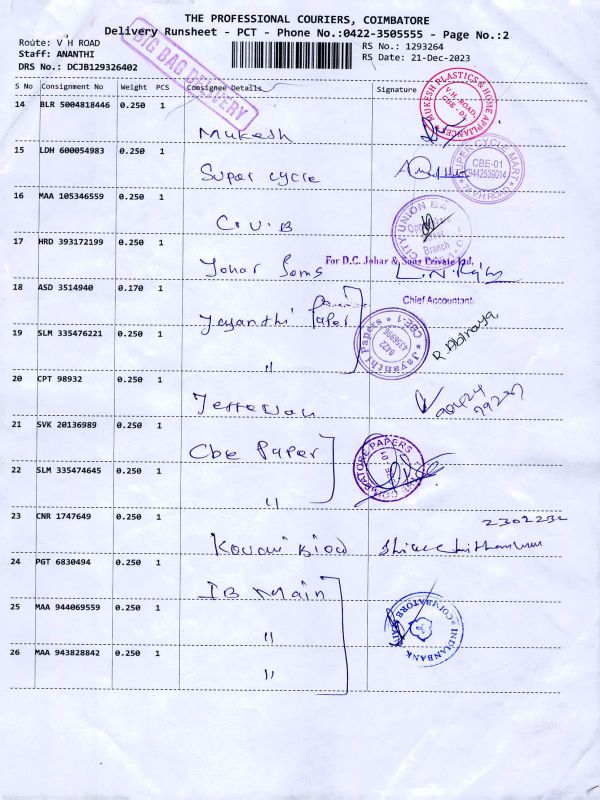 THE PROFESSIONAL COURIERS, COIMBATORE
Delivery Runsheet - PCT - Phone No.:0422-3505555 - Page No.:2
Route: V H ROAD
RS No.: 1293264
Staff: ANANTHI
RS Date: 21-Dec-2023
DRS No.: DCJB129326402
BIG BAG DELIVERY
S No Consignment No Weight PCS Consignee Details Signature
14 BLR 5004818446 0.250 1
Mukesh
MUKESH PLASTICS & HOME APPLIANCES V.H. ROAD, CBE - 01
15 LDH 600054983 0.250 1
Super cycle
SUPER CYCLE MART CBE-01 9442539014 V.H.ROAD
16 MAA 105346559 0.250 1
C.U.B
CITY UNION BA Branch
17 HRD 393172199 0.250 1
Johar Sons
For D.C. Johar & Sons Private Ltd.
Chief Accountant
18 ASD 3514940 0.170 1
Jayanthi Paper
Jayanthi Papers CBE-1 0422
R. Abinaya
19 SLM 335476221 0.250 1
"
20 CPT 98932 0.250 1
21 SVK 20136989 0.250 1
Cbe Paper
COIMBATORE PAPERS
22 SLM 335474645 0.250 1
"
23 CNR 1747649 0.250 1
2302232
24 PGT 6830494 0.250 1
IB Main
25 MAA 944069559 0.250 1
"
INDIANBANK COIMBATORE MAIN
26 MAA 943828842 0.250 1
"